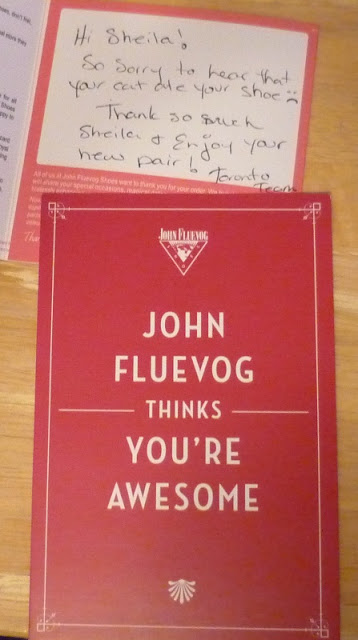 Hi Sheila!
So Sorry to hear that
your cat ate your shoe
Thank so such
Sheila & Enjoy your
new pair!
Toronto
Team
All of us at John Fluevog Shoes want to thank you for your order. We
will share your special occasions,
JOHN FLUEVOG
JOHN
FLUEVOG
THINKS
YOU'RE
AWESOME